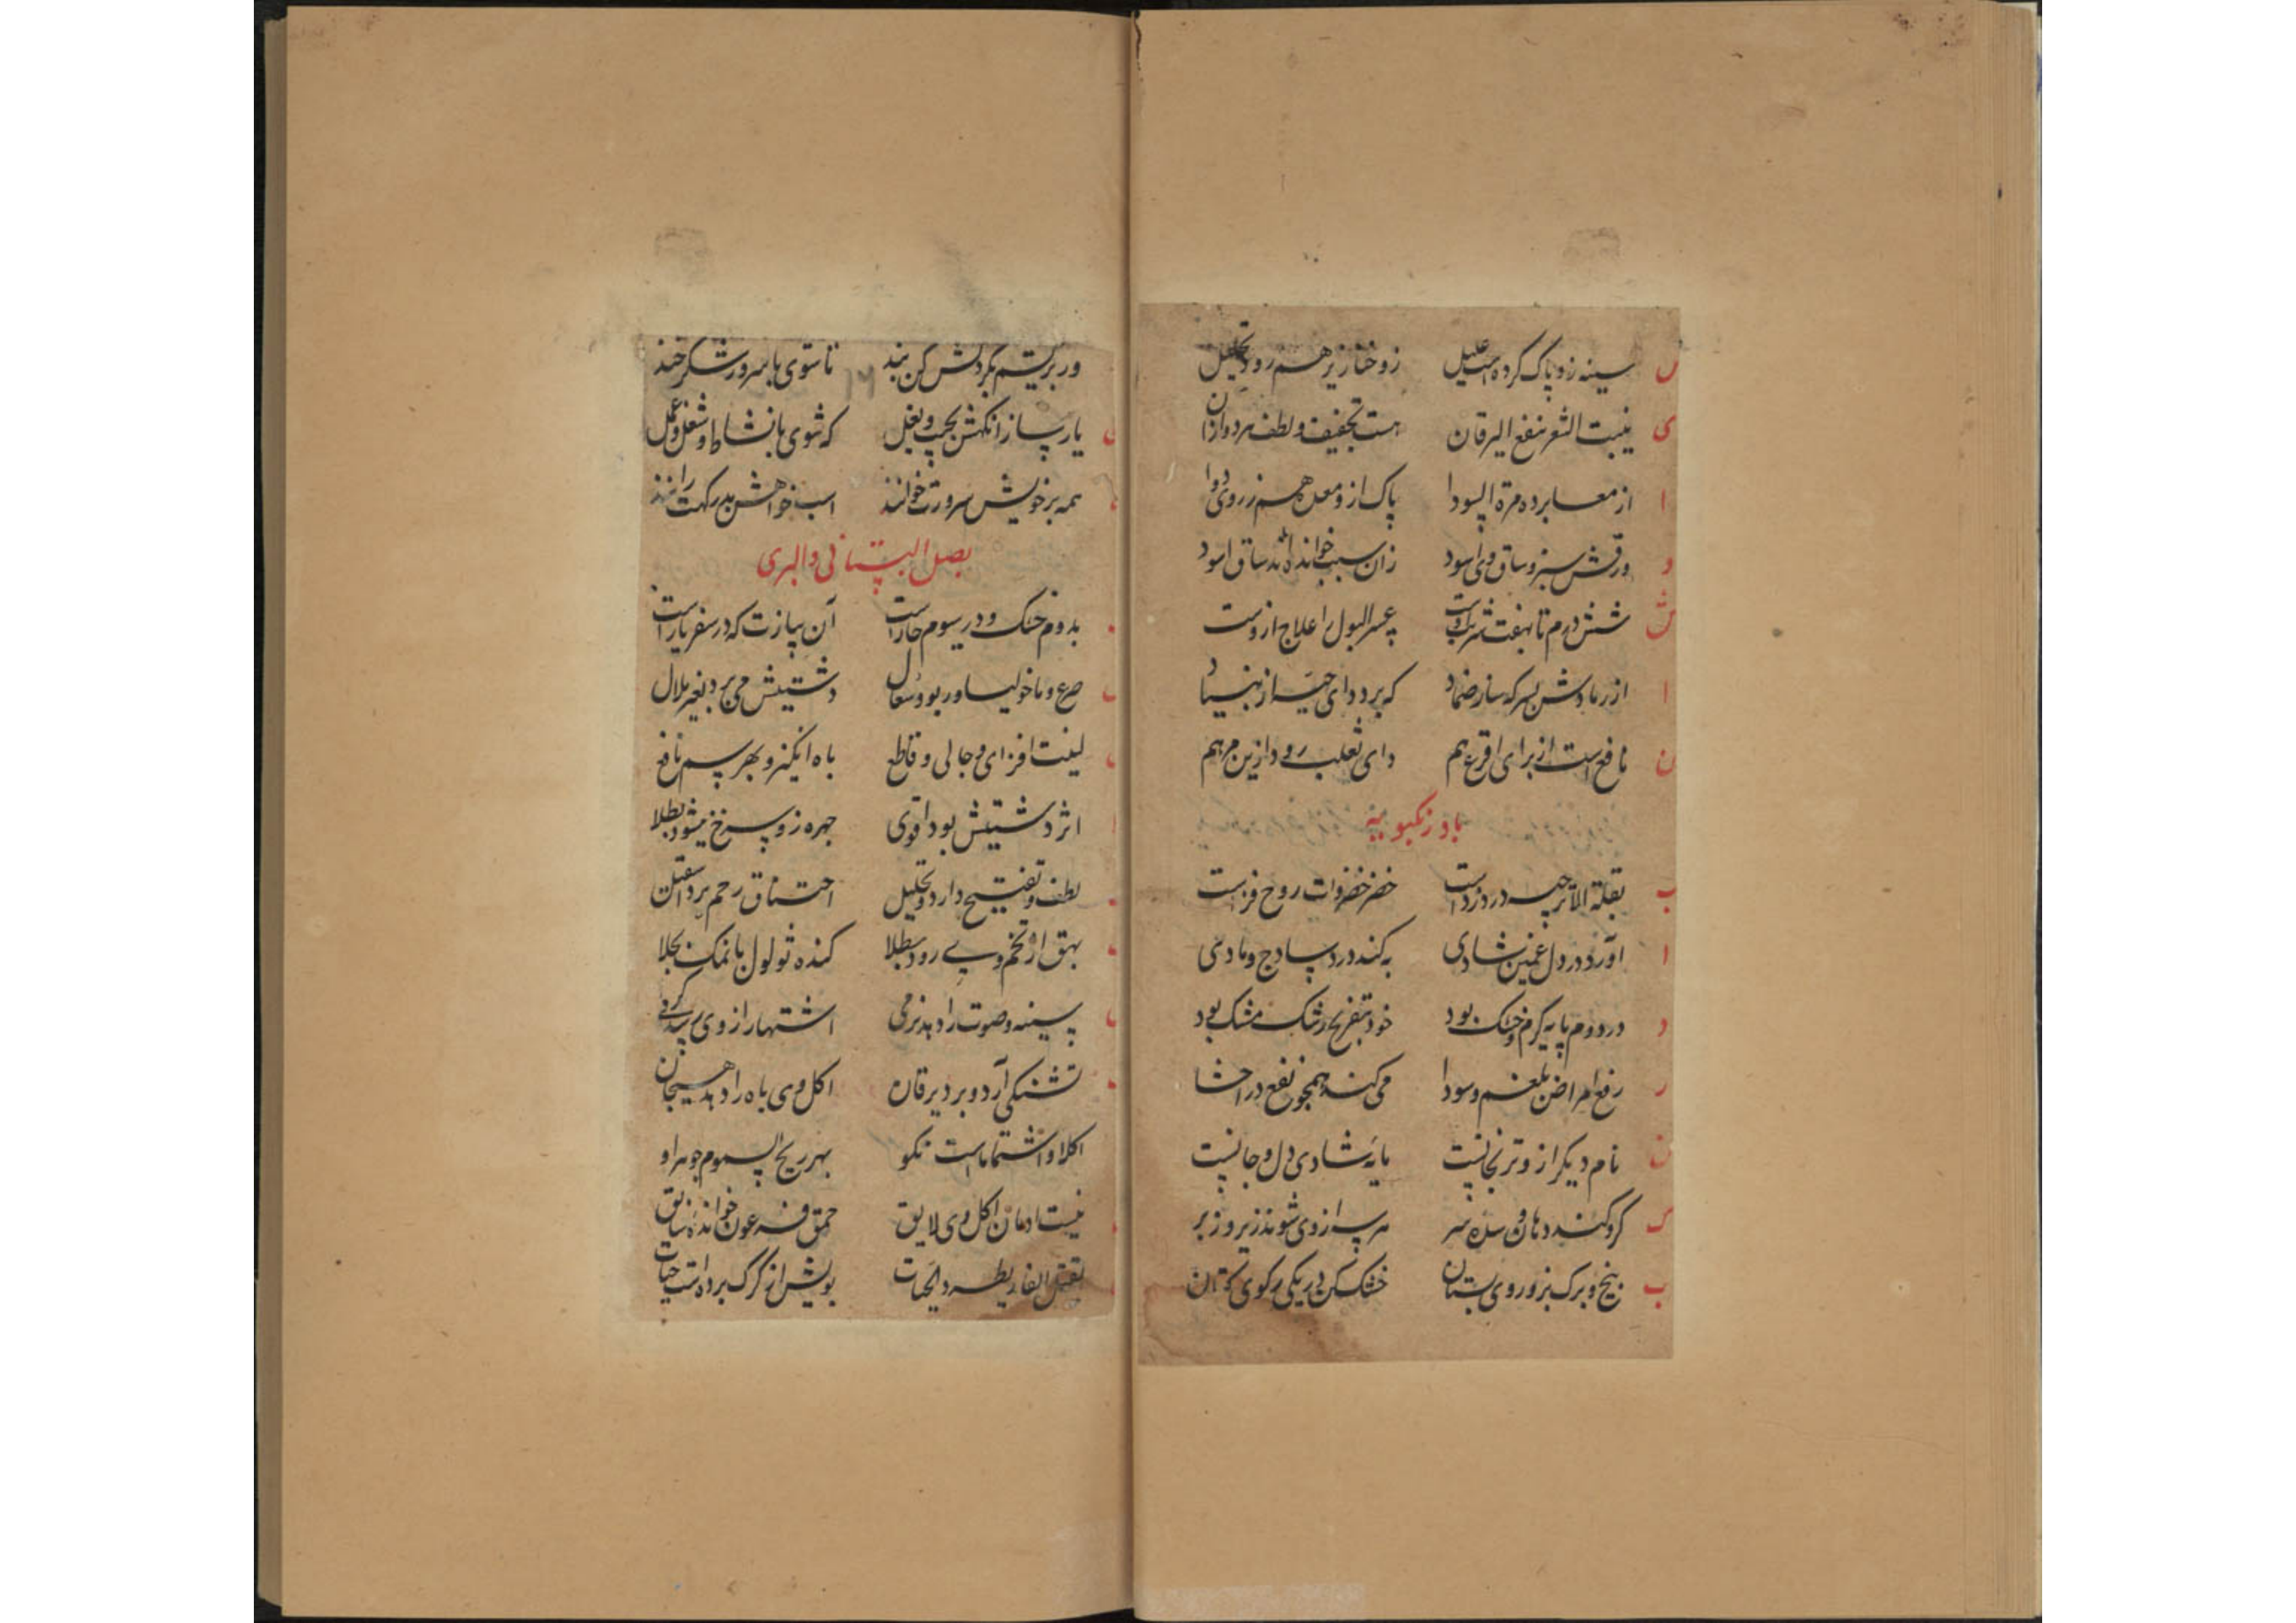 س سینه زو پاک کرده است علیل زو خنازیر هم رود تحلیل
ی ینبت الشعر ینفع الیرقان هست تجفیف و لطف هر دو از آن
ا از معا برده مرة السودا پاک از و معده هم ز روی دوا
و ورقش سبز و ساق وی اسود زان سبب خوانده اند ساق اسود
ش شش درم تا بهفت شربت اوست عسر البول را علاج ازوست
ا از رمادش بسرکه ساز ضماد که برد دای حیه از بنیاد
ن نافع است از برای اقرع هم دای ثعلب رود ازین مرهم
بادرنکبویه
ب بقلة الاترجیه در دز داست خضر خضروات روح فزاست
ا آورد در دل غمین شادی به کند درد ساذج و مادی
د در دوم پایه کرم و خشک بود خود بتفریح رشک مشک بود
ر رفع امراض بلغم و سودا می کند همچو نفع در احشا
ن نام دیکر ازو ترنجانست مایه شادی دل و جانست
ک کر کند دهان و سده سر هر سه از وی شوند زیر و زبر
ب بیخ و برک بزور وی بستان خشک کن در یکی رکوی کتان
ور بریشم بکردنش کن بند تا شوی با سرور و شکر خند
ی یار سازانکهش بجیب و بغل که شوی با نشاط و شغل و عمل
ه همه برخویش سرورت خوانند اسب خواهش بدرکهت رانند
بصل البستانی والبری
ب بدوم خشک و در سیوم حار است آن پیازت که در سفر یار است
ص صرع و ماخولیا و ربو و سعال دشتیش می برد بغیر ملال
ل لینت افزای و جالی و قاطع باه انکیز و بهر سم نافع
ا اثر دشتیش بود اقوی چهره زو سرخ میشود بطلا
ل لطف و تفتیح دارد و تحلیل اختناق رحم برد
ب بهق از تخم وی رود بطلا کنده ثولول با نمک بجلا
س سینه و صوت را دهد نرمی اشتها را ز وی رسد کرمی
ت تشنکی آرد و برد یرقان اکل وی باه را دهد هیجان
ا اکلا و اشتماما است نکو بهر ریح السموم جوهر او
ن نیست ادمان اکل وی لایق حمق فرعون خوانده سابق
ی یقتل الفار یطرد الحیات بویش از کرک برده است حیات